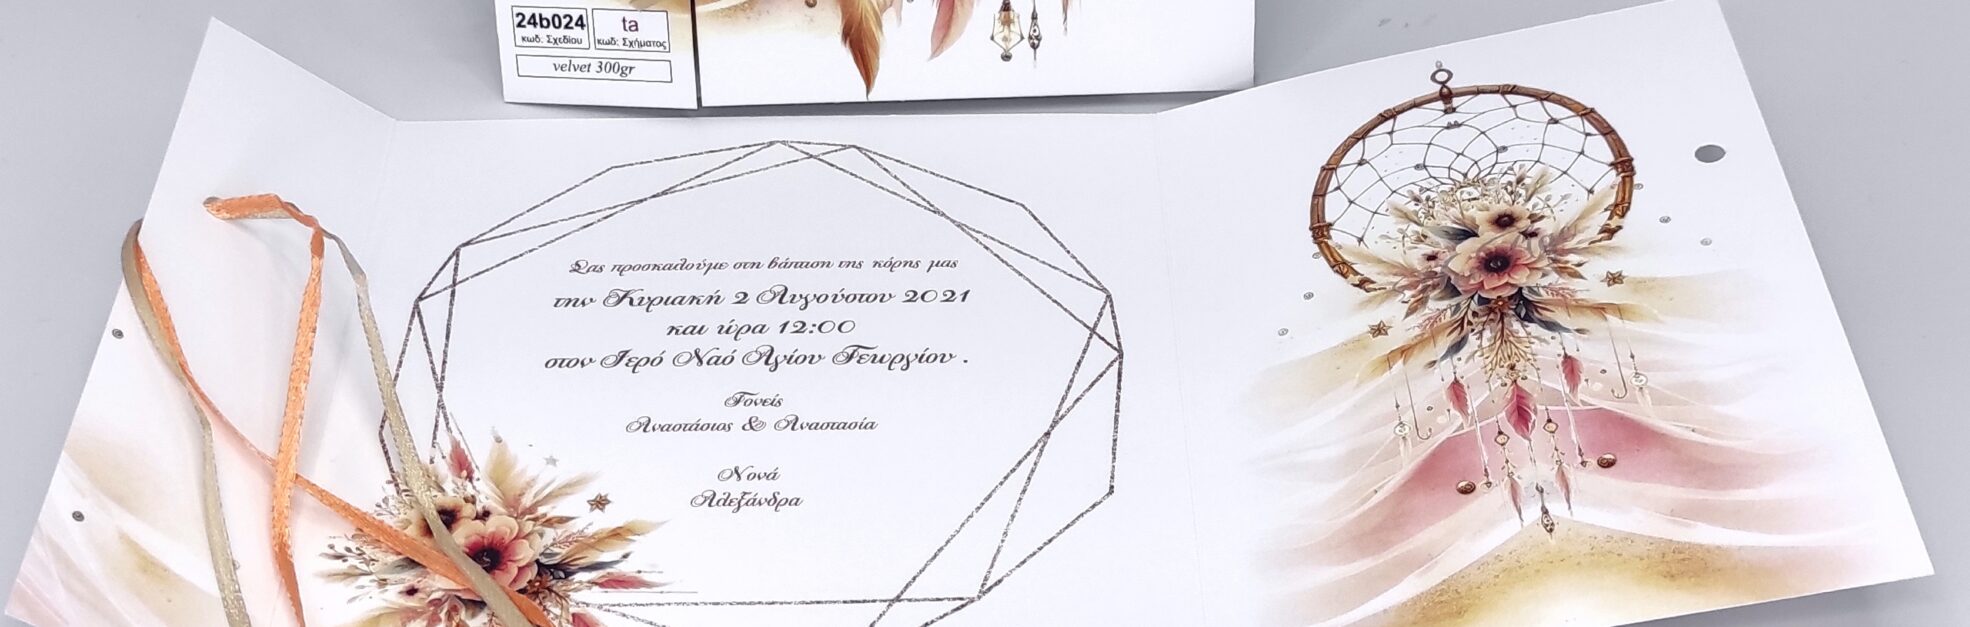 24b024
κωδ: Σχεδίου
ta
κωδ: Σχήματος
velvet 300gr
Σας προσκαλούμε στη βάπτιση της κόρης μας
την Κυριακή 2 Αυγούστου 2021
και ώρα 12:00
στον Ιερό Ναό Αγίου Γεωργίου .
Γονείς
Αναστάσιος & Αναστασία
Νονά
Αλεξάνδρα